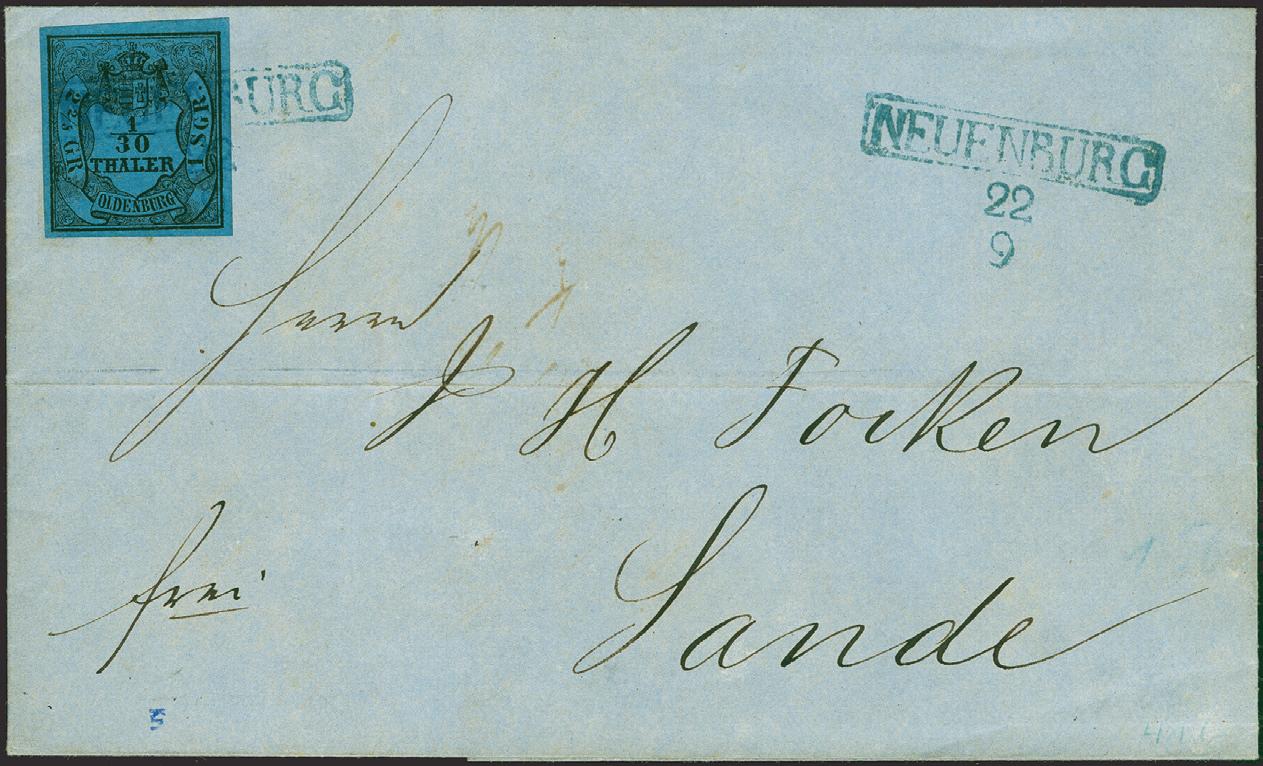 2 2/5 GR.
1
30
THALER
1 SGR.
OLDENBURG
BURG
NEUENBURG
22
9
Herrn
J H Focken
frei
Sande
5